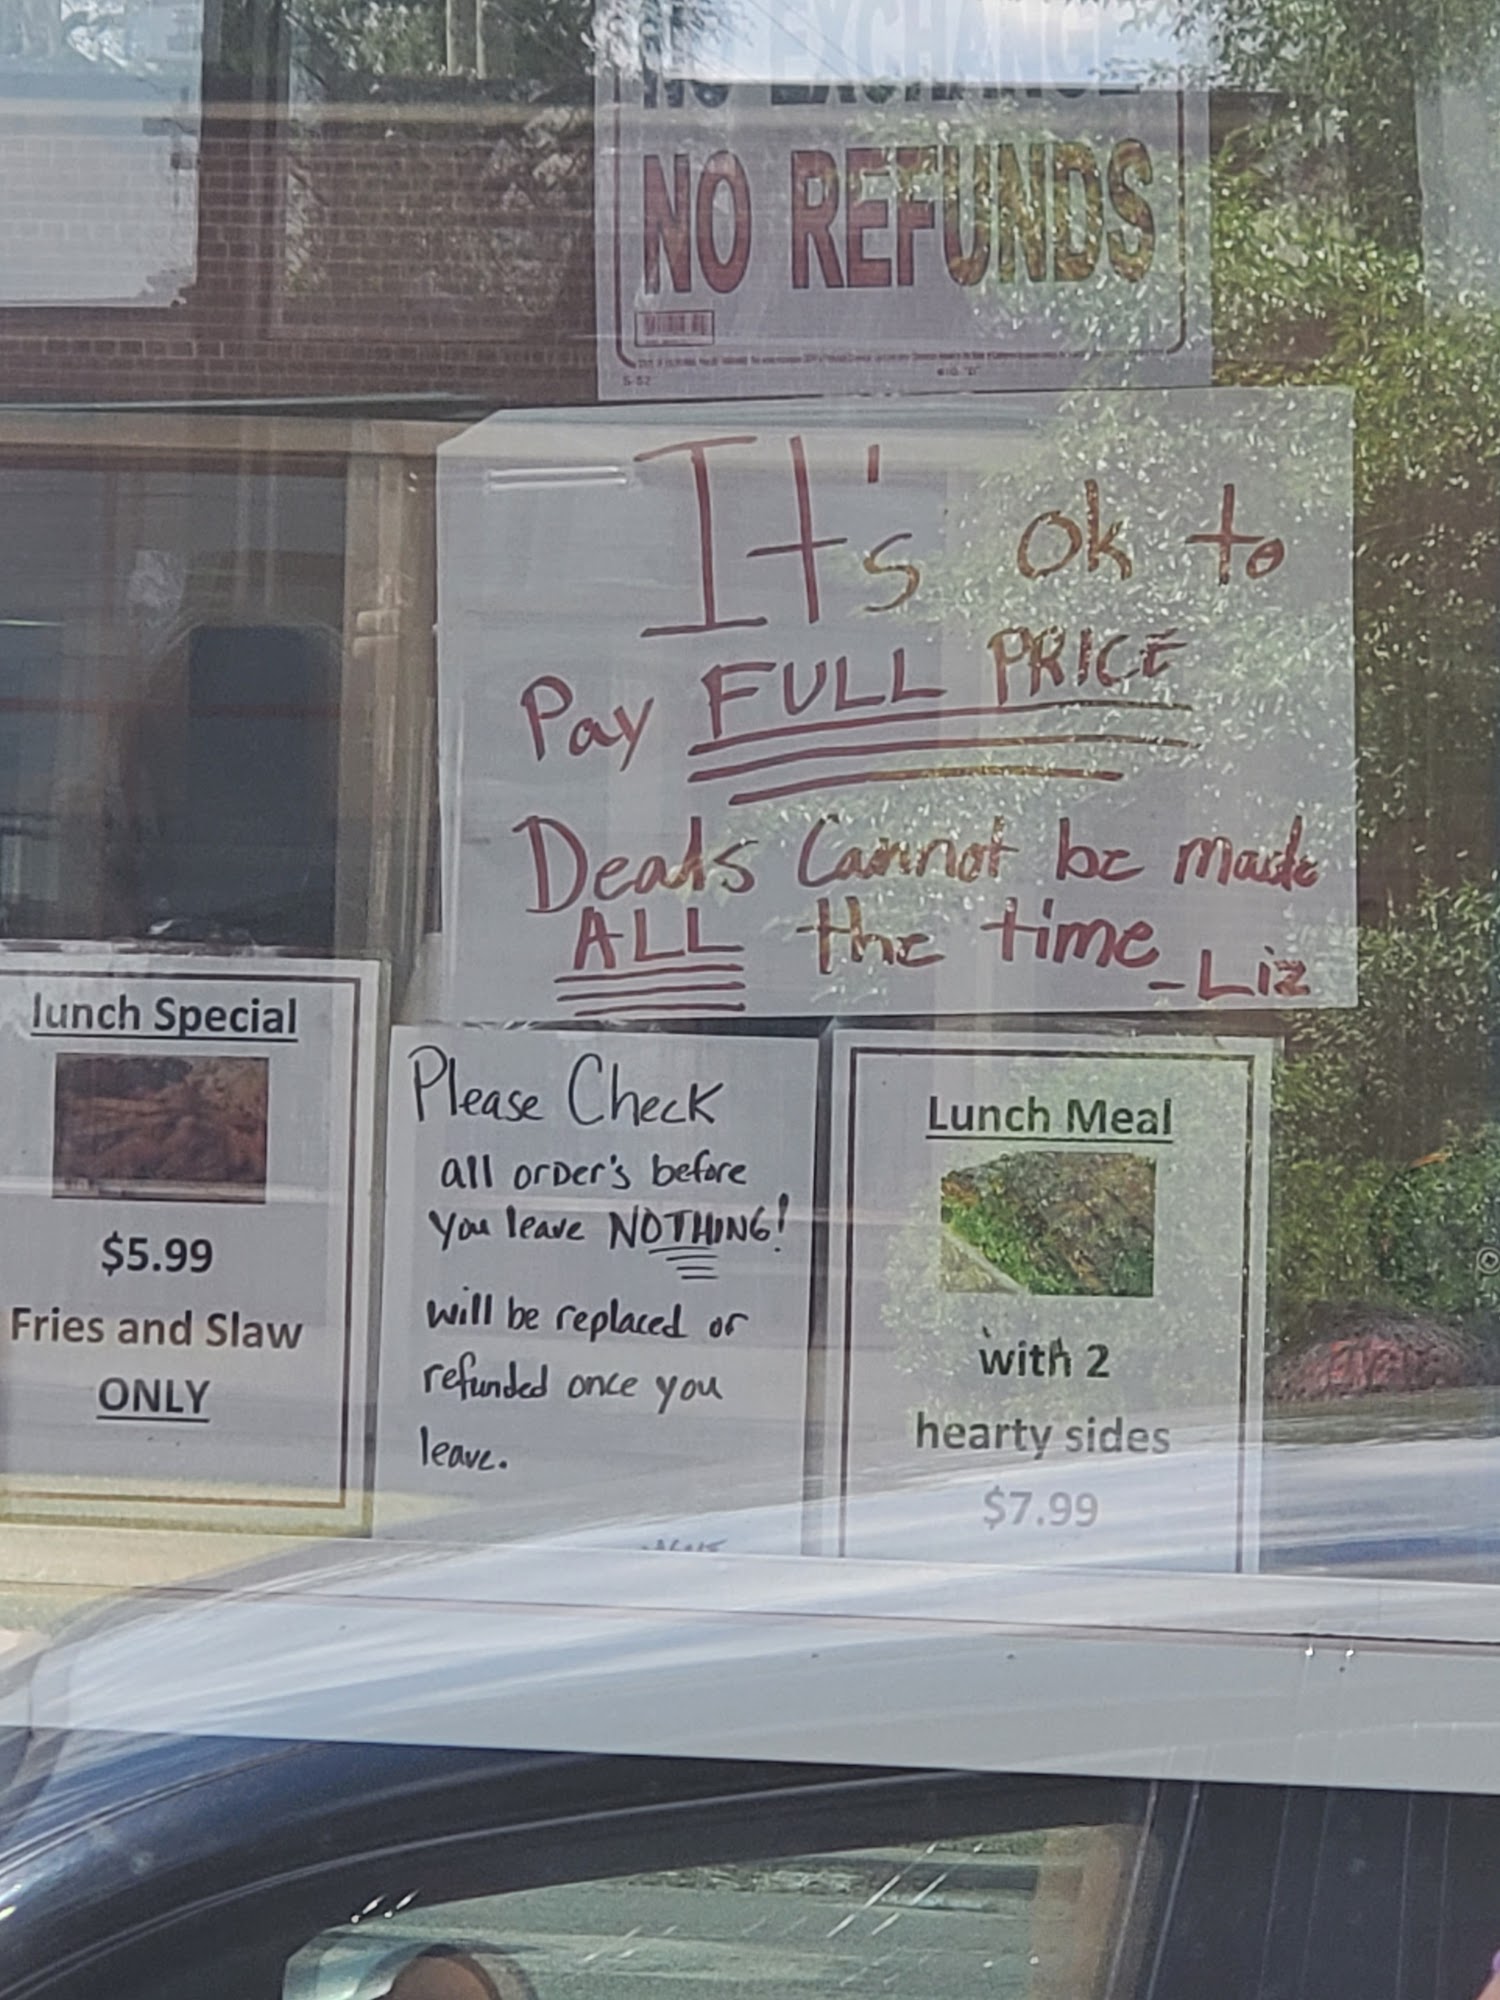 NO EXCHANGE
NO REFUNDS
S-52
It's ok to
Pay FULL PRICE
Deals Cannot be made
ALL the time
-Liz
lunch Special
$5.99
Fries and Slaw
ONLY
Please Check
all orDer's before
you leave NOTHING!
will be replaced or
refunded once you
leave.
Lunch Meal
with 2
hearty sides
$7.99